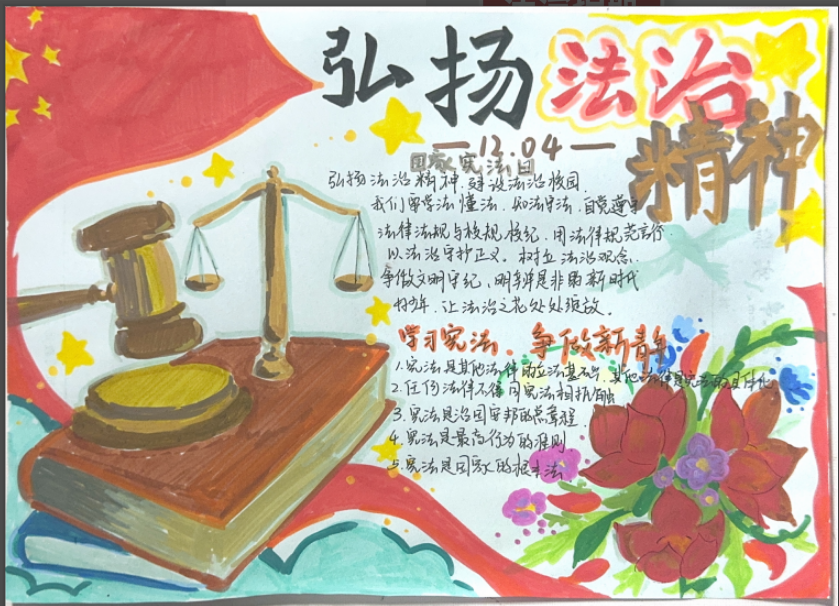 弘扬法治
精神
12.04
国家宪法日
弘扬法治精神.建设法治校园.
我们要学法.懂法.知法守法.自觉遵守
法律法规与校规校纪.用法律规范言行
以法治守护正义.树立法治观念.
争做文明守纪、明辨是非的新时代
好少年.让法治之花处处绽放.
学习宪法、争做新青年
1.宪法是其他法律的立法基础.其他法律是宪法的具体化
2.任何法律不得同宪法相抵触
3.宪法是治国安邦的总章程.
4.宪法是最高行为的准则.
5.宪法是国家的根本法.